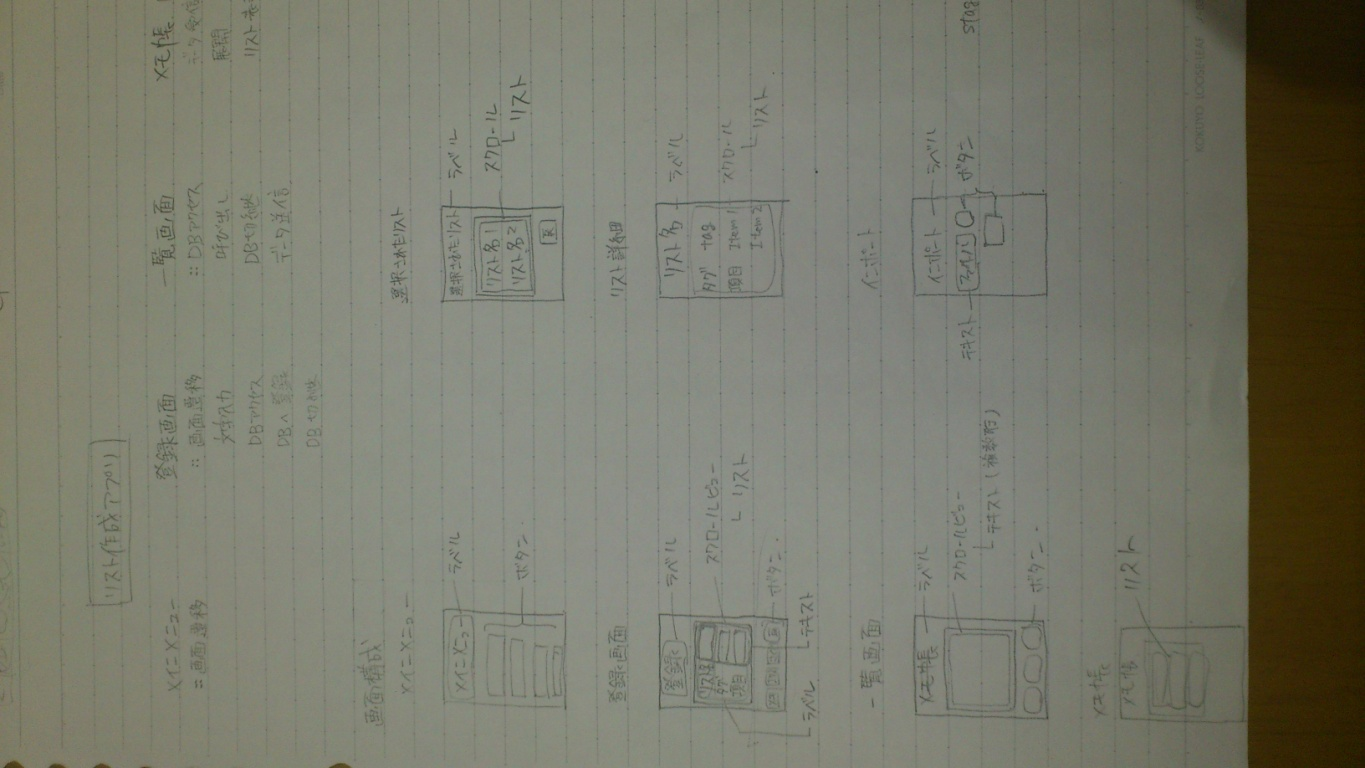 リスト作成アプリ
メインメニュー
:: 画面遷移
登録画面
:: 画面遷移
文字入力
DBアクセス
DBへ登録
DB切断
一覧画面
:: DBアクセス
呼び出し
DB切断
データ送信
メモ帳
データ受信
展開
画面構成
メインメニュー
メインメニュー
ラベル
ボタン
選択されたリスト
選択されたリスト
リスト名1
リスト名2
ラベル
スクロール
リスト
登録画面
登録
リスト名
タグ
項目
ラベル
スクロールビュー
リスト
ボタン
テキスト
ラベル
リスト詳細
リスト名
タグ tag
項目 Item1
Item2
ラベル
スクロール
リスト
一覧画面
メモ帳
ラベル
スクロールビュー
テキスト(複数行)
ボタン
インポート
インポート
ラベル
ボタン
テキスト
メモ帳
メモ帳
リスト
KOKUYO LOOSE-LEAF